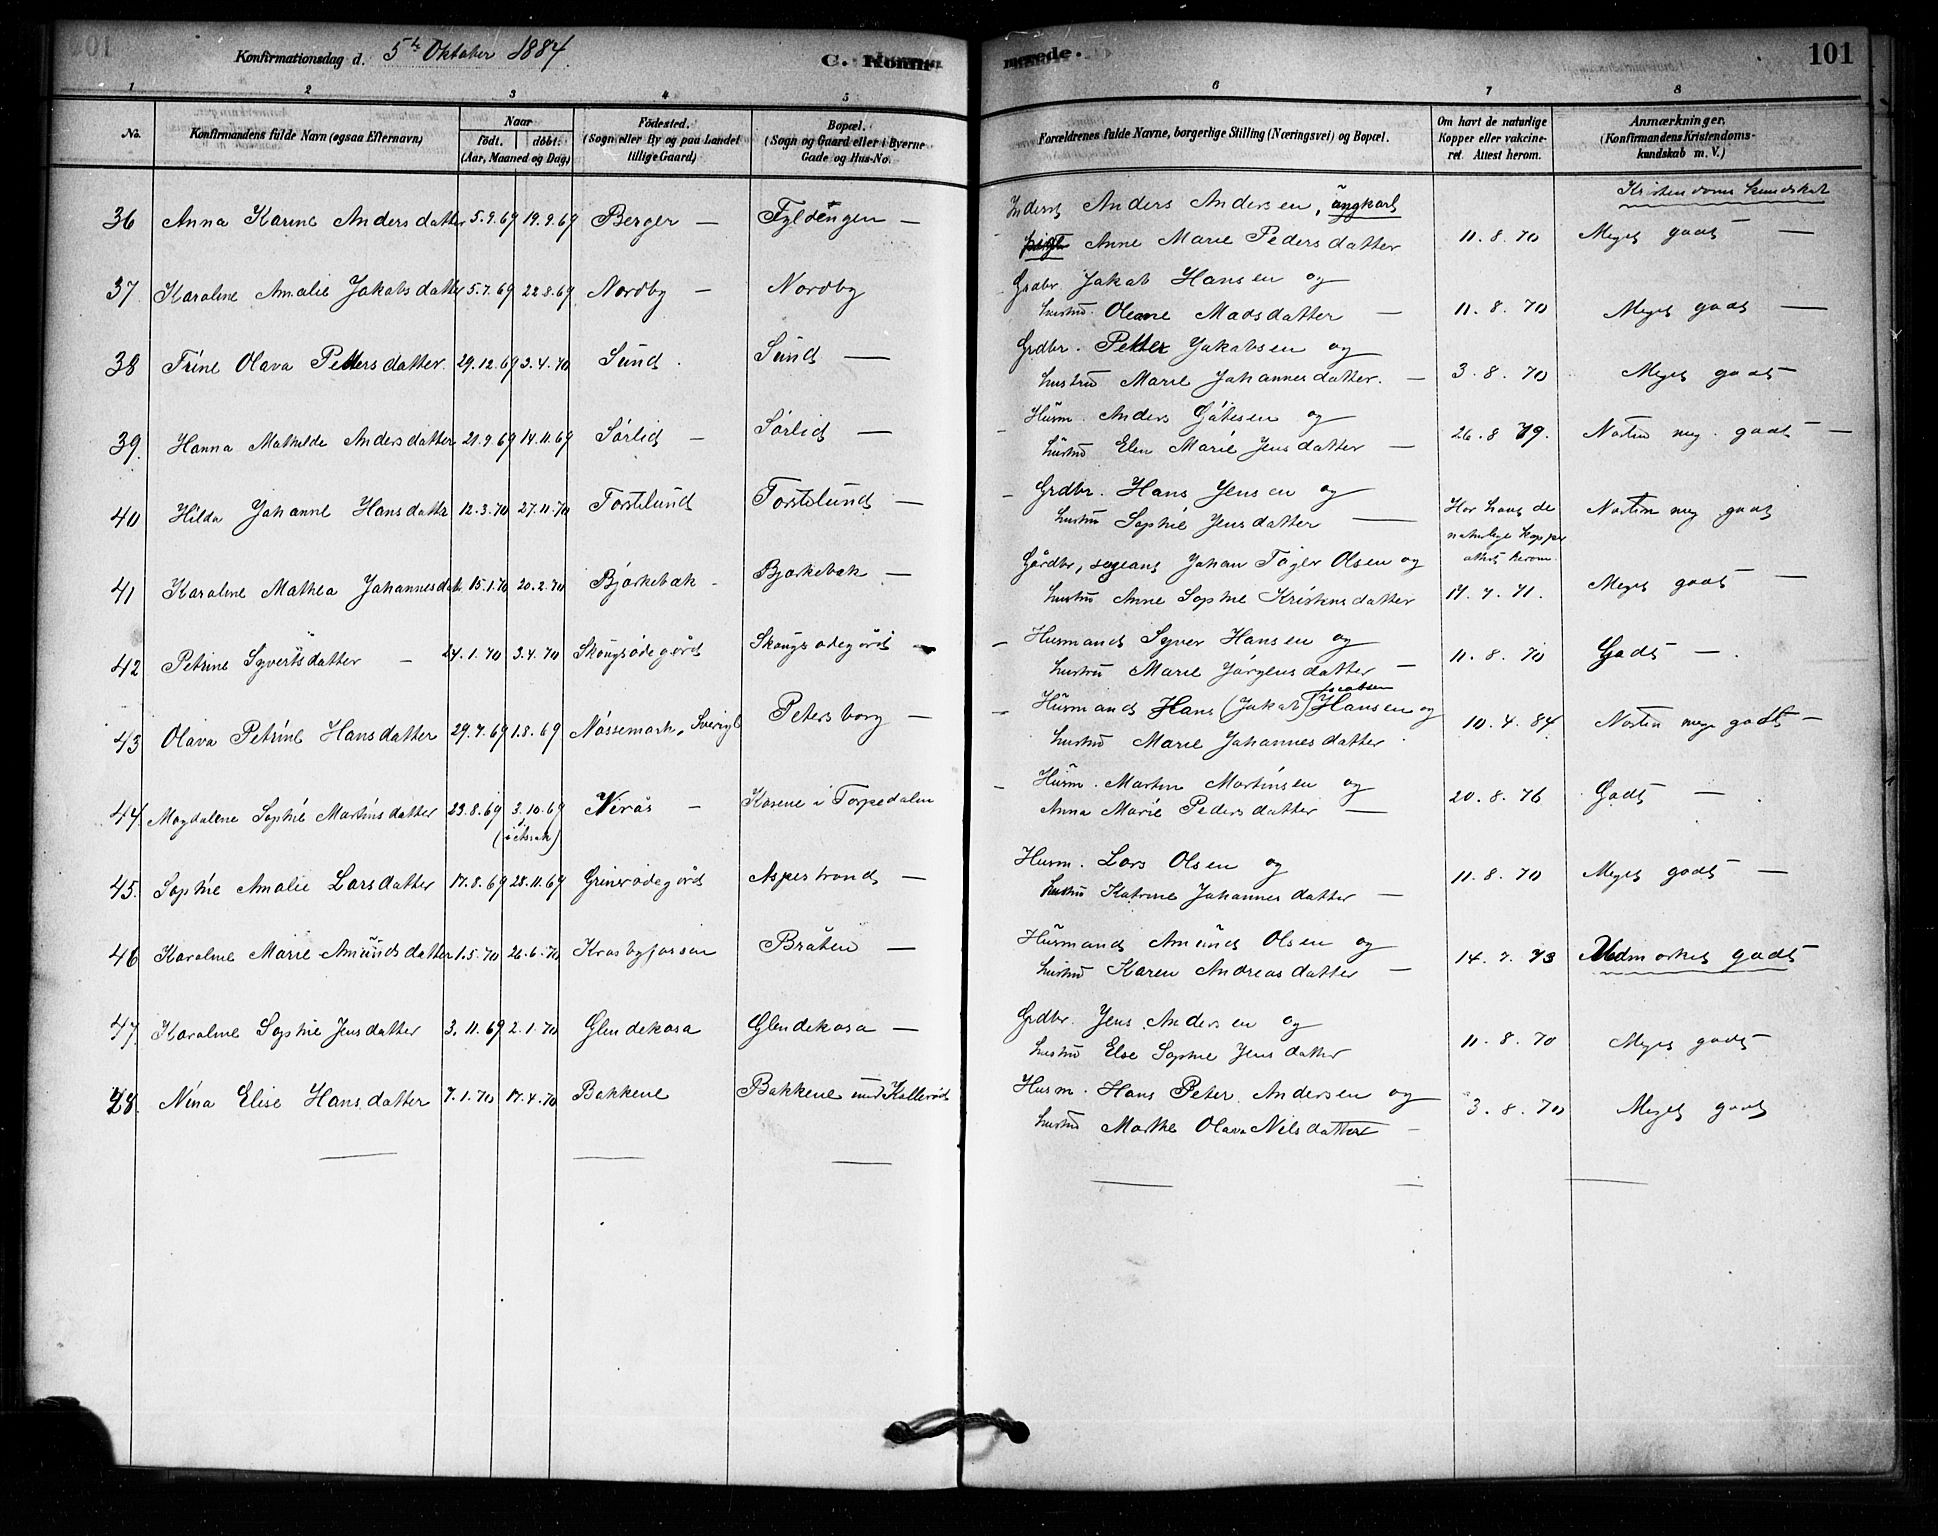 Konfirmationsdag d. 5te Oktober 1884.
C. Konfir
merede.
101
1 2 3 4 5 6 7 8
No.
Konfirmandens fulde Navn (ogsaa Efternavn)
Naar
födt. döbt.
(Aar, Maaned og Dag)
Födested.
(Sogn eller By og paa Landet
tillige Gaard)
Bopæl.
(Sogn og Gaard eller i Byerne
Gade og Hus-No.
Forældrenes fulde Navne, borgerlige Stilling (Næringsvei) og Bopæl.
Om havt de naturlige
Kopper eller vakcine-
ret. Attest herom.
Anmærkninger.
(Konfirmandens Kristendoms-
kundskab m. V.)
Kristendoms kundskab
36 Anna Karine Andersdatter 5.9.69 19.9.69 Berger — Fyldengen — Inderst Anders Andersen, ungkarl
pige Anne Marie Pedersdatter 11.8.70 Meget godt —
37 Karoline Amalie Jakobsdatter 5.7.69 22.8.69 Nordby — Nordby Grdbr. Jakob Hansen og
hustru Oleane Madsdatter — 11.8.70 Meget godt —
38 Trine Olava Pettersdatter. 29.12.69 3.4.70 Sund. Sund — Grdbr. Petter Jakobsen og
hustru Marie Johannesdatter. — 3.8.70 Meget godt
39. Hanna Mathilde Andersdatter 21.9.69 14.11.69 Sørlid — Sørlid — Husm. Anders og
hustru Elen Marie Jensdatter — 26.8 79. Næsten meg. godt —
40 Hilda Johanne Hansdatter 12.3.70 27.11.70 Torstilund Torstilund — Grdbr. Hans Jensen og
hustru Sophie Jensdatter — Har havt de
naturlige kopper
attest herom. Næsten meg godt
41 Karoline Mathea Johannesdat. 15.1.70 20.2.70 Bjørkebæk - Bjørkebæk — Gårdbr, Johan Olsen og
hustru Anne Sophie Kristensdatter 17.7.71. Meget godt —
42 Petrine Syvertsdatter — 24.1.70 3.4.70 Skougsødegård Skougsødegård — Husmand Syver Hansen og
hustru Marie Jørgensdatter — 11.8.70 Godt — .
43 Olava Petrine Hansdatter 29.7.69 1.8.69 Nössemark, Sverige Petersborg — Husmand Hans (Jakob) Jacobsen Hansen og
hustru Marie Johannesdatter 10.4.84 Næsten mege godt —
44. Magdalene Sophie Martinsdatter 23.8.69 3.10.69 Nerås — Kasene i Torpedalen — Husm. Martin Martinsen og
Anna Marie Pedersdatter — 20.8.76 Godt — .
45. Sophie Amalie Larsdatter 17.8.69 28.11.69 Grinsrødegård Asperstrand — Husm. Lars Olsen og
hustru Katrine Johannesdatter — 11.8.70 Meget godt —
46 Karoline Marie Amundsdatter 1.5.70 26.6.70 Bråten — Husmand Amund Olsen og
hustru Karen Andreasdatter — 14.7.73 Udmærket godt
47. Karoline Sophie Jensdatter 3.11.69 2.1.70 Glendekasa Glendekasa — Grdbr. Jens Andersen og
hustru Else Sophie Jensdatter 11.8.70 Meget godt
48. Nina Elise Hansdatter 7.1.70 17.4.70 Bakkene Bakkene und. Kallerød Husm. Hans Peter Andersen og
hustru Marthe Olava Nilsdatter — 3.8.70 Meget godt